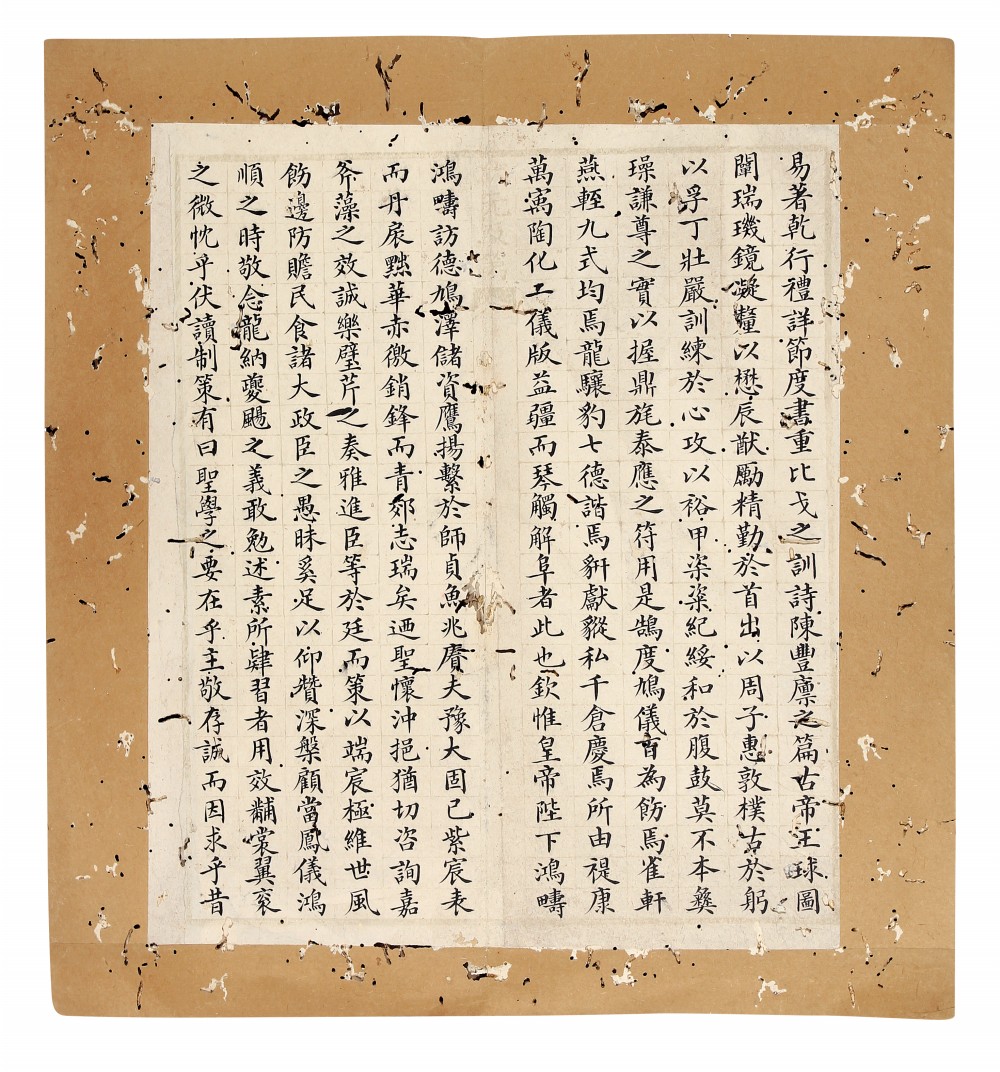 易著乾行禮詳節度書重比戈之訓詩陳豐廪之篇古帝王球圖
闡瑞璣鏡凝釐以懋辰猷勵精勤於首出以周子惠敦樸古於躬
以孚丁壯嚴訓練於心攻以裕甲粢粢紀綏和於腹鼓莫不本彝
璪謙尊之實以握鼎旄泰應之符用是鵠度鳩儀 為飭焉雀軒
燕輊九式均焉龍驤豹七德諧焉豜獻豵私千倉慶焉所由禔康
萬㝢陶化工儀版益疆而琴觸解阜者此也欽惟皇帝陛下鴻疇
鴻疇訪德鳩澤儲資鷹揚繫於師貞魚兆賡夫豫大固已紫宸表
而丹扆黜華赤徼銷鋒而青郊志瑞矣迺聖懷沖挹猶切咨詢嘉
斧藻之效誠樂璧芹之奏雅進臣等於廷而策以端宸極維世風
飭邊防贍民食諸大政臣之愚昧奚足以仰贊深槃顧當鳳儀鴻
順之時敬念龍納夔颺之義敢勉述素所肄習者用效黼裳翼衮
之微忱乎伏讀制策有曰聖學之要在乎主敬存誠而因求乎昔